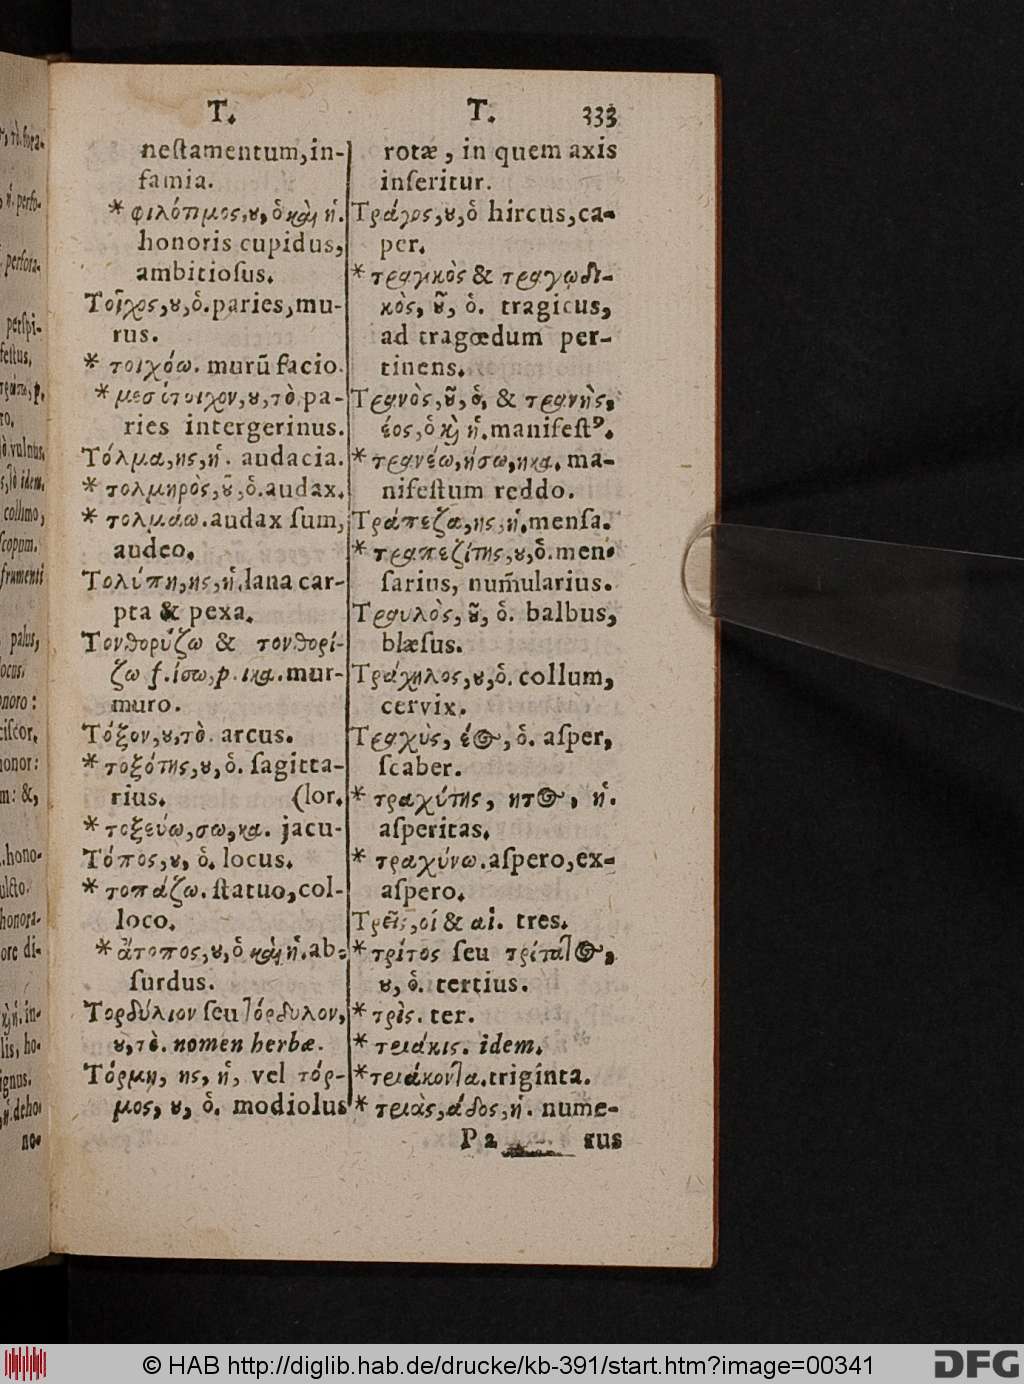 T.
neſtamentum, in-
famia.
* φιλότιμος, ου, ὁ καὶ ἡ.
honoris cupidus,
ambitioſus.
Τοῖχος, ου, ὁ. paries, mu-
rus.
* τοιχόω. murũ facio.
* μεσότοιχον, ου, τὸ. pa-
ries intergerinus.
Τόλμα, ης, ἡ. audacia.
* τολμηρὸς, οῦ, ὁ. audax.
* τολμάω. audax ſum,
audeo.
Τολύπη, ης, ἡ. lana car-
pta & pexa.
Τονθορύζω & τονθορί-
ζω f. ίσω, p. ικα. mur-
muro.
Τόξον, ου, τὸ. arcus.
* τοξότης, ου, ὁ. ſagitta-
rius. (lor.
* τοξεύω, σω, κα. jacu-
Τόπος, ου, ὁ. locus.
* τοπάζω. ſtatuo, col-
loco.
* ἄτοπος, ου, ὁ καὶ ἡ. ab-
ſurdus.
Τορδύλιον ſeu τόρδυλον,
ου, τὸ. nomen herbæ.
Τόρμη, ης, ἡ, vel τόρ-
μος, ου, ὁ. modiolus
T. 333
rotæ, in quem axis
inſeritur.
Τράγος, ου, ὁ hircus, ca-
per.
* τραγικὸς & τραγῳδι-
κὸς, οῦ, ὁ. tragicus,
ad tragœdum per-
tinens.
Τρανὸς, οῦ, ὁ, & τρανὴς,
έος, ὁ καὶ ἡ. manifeſtꝰ.
* τρανέω, ήσω, ηκα. ma-
nifeſtum reddo.
Τράπεζα, ης, ἡ. menſa.
* τραπεζίτης, ου, ὁ. men-
ſarius, num̃ularius.
Τραυλὸς, οῦ, ὁ. balbus,
blæſus.
Τράχηλος, ου, ὁ. collum,
cervix.
Τραχὺς, έος, ὁ. aſper,
ſcaber.
* τραχύτης, ητος, ἡ.
aſperitas.
* τραχύνω. aſpero, ex-
aſpero.
Τρεῖς, οἱ & αἱ. tres.
* τρίτος ſeu τρίτατος,
ου, ὁ. tertius.
* τρὶς. ter.
* τριάκις. idem.
* τριάκοντα. triginta.
* τριὰς, άδος, ἡ. nume-
P 2 rus
© HAB http://diglib.hab.de/drucke/kb-391/start.htm?image=00341
DFG